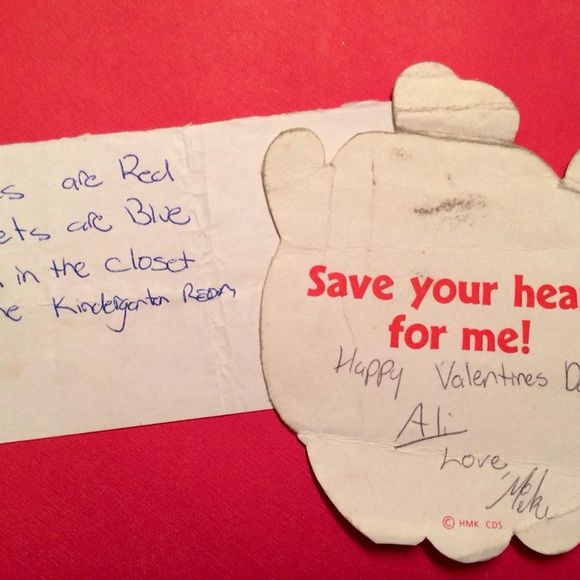 es are Red
ets are Blue
in the closet
he Kindergarton Room
Save your hea
for me!
Happy Valentines Da
Ali
Love,
Mike
© HMK CDS